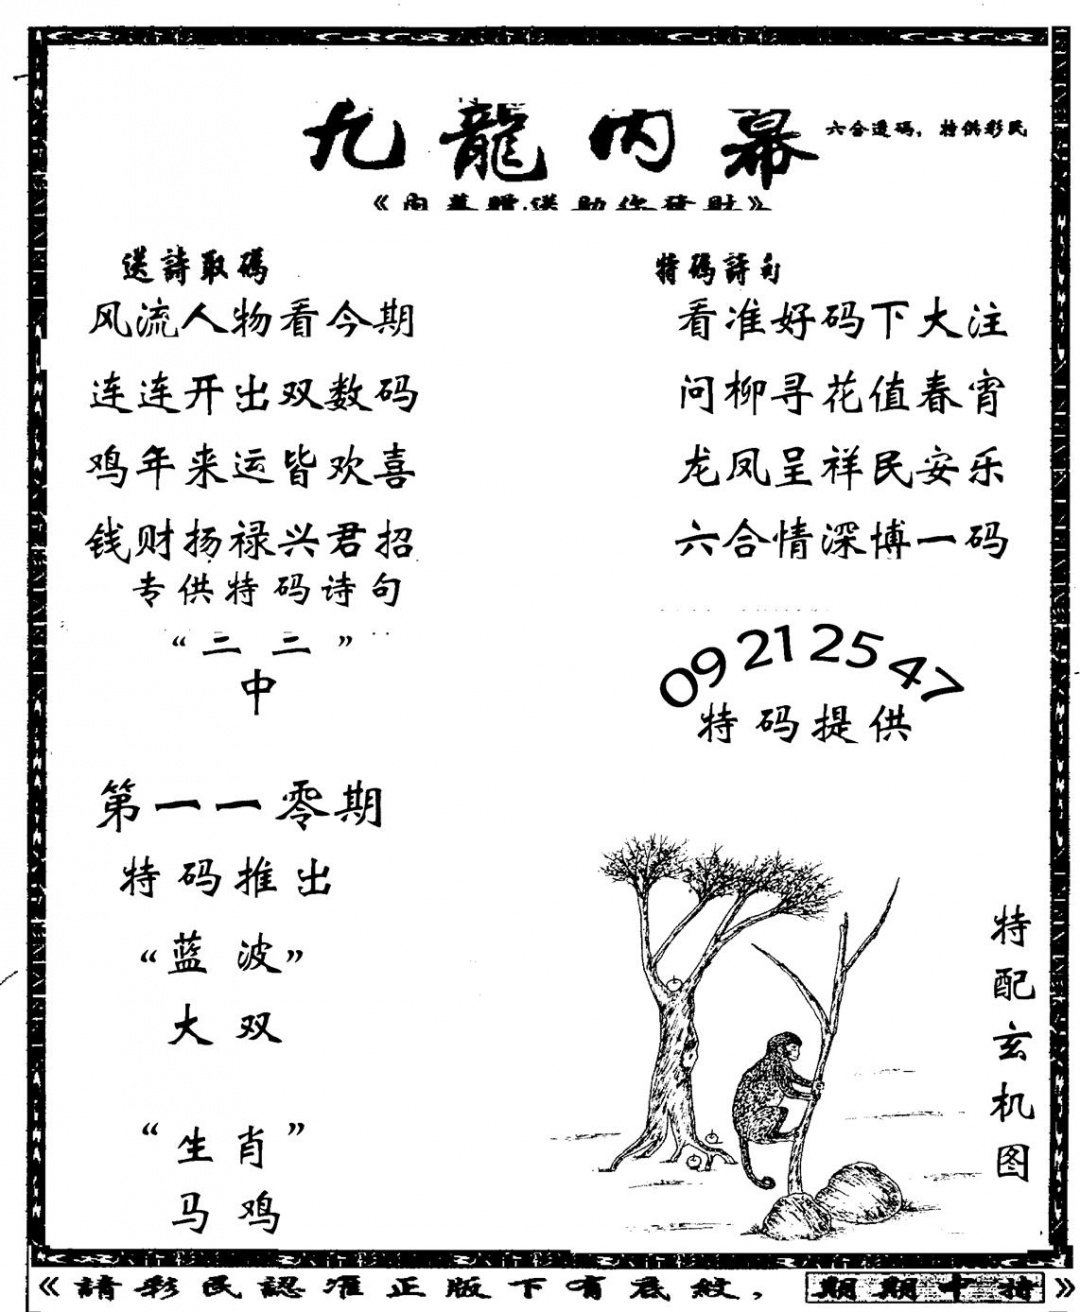 九龍内幕
六合透码，特供彩民
《内幕赠送助你發財》
送詩取碼
风流人物看今期
连连开出双数码
鸡年来运皆欢喜
钱财扬禄兴君招
专供特码诗句
“二 二”
中
特碼詩句
看准好码下大注
问柳寻花值春宵
龙凤呈祥民安乐
六合情深博一码
09 21 25 47
特码提供
第一一零期
特码推出
“蓝波”
大双
“生肖”
马鸡
特配玄机图
《請彩民認准正版下有底紋，期期中特》